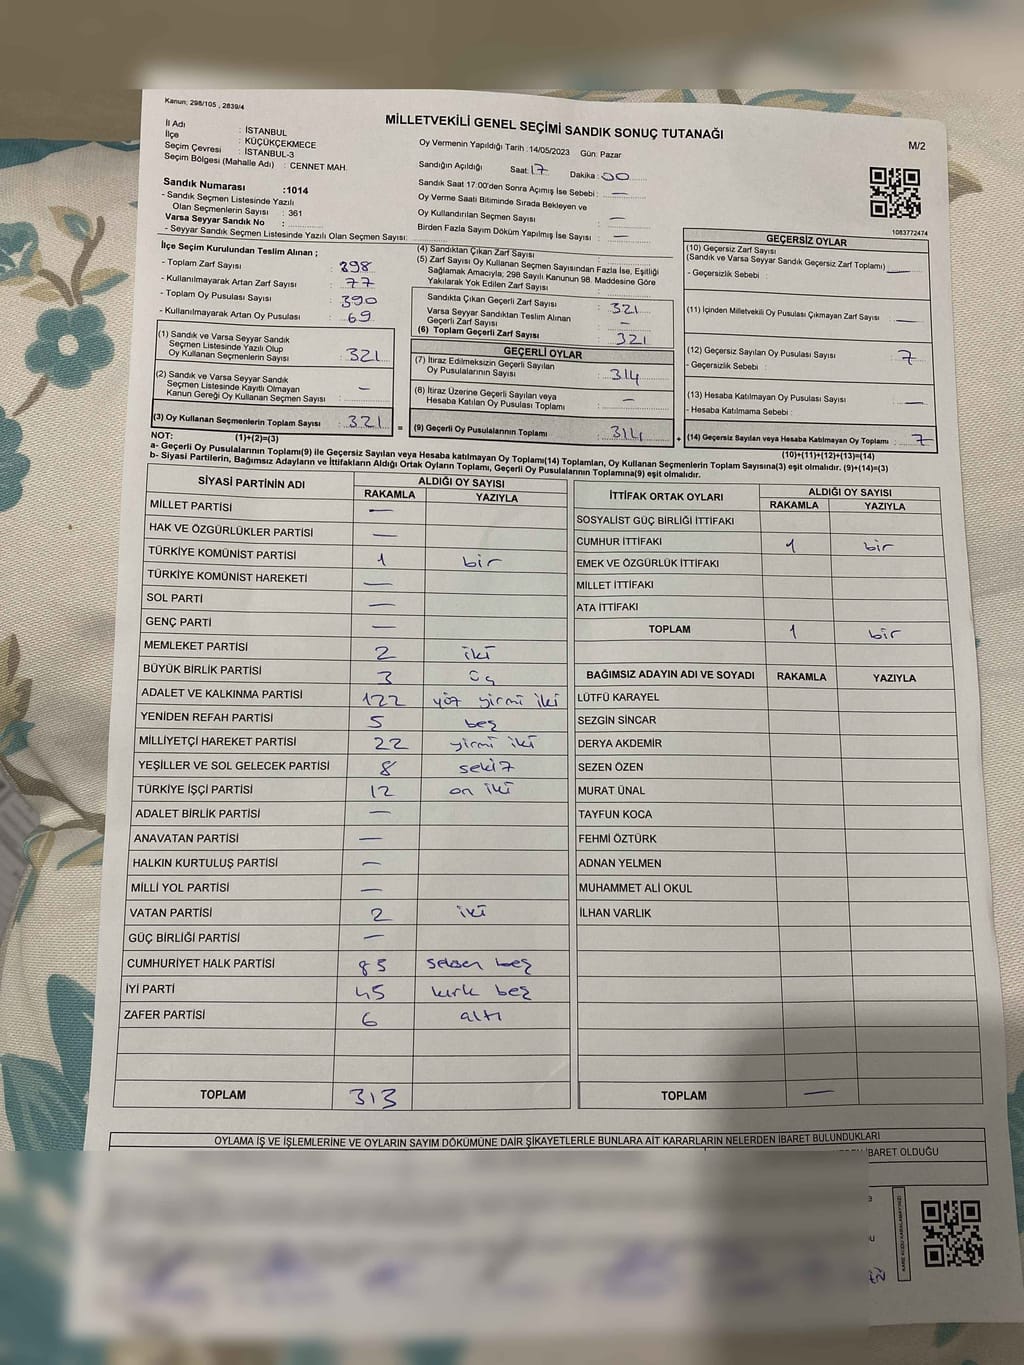 Kanun: 298/105 , 2839/4
MİLLETVEKİLİ GENEL SEÇİMİ SANDIK SONUÇ TUTANAĞI
M/2
İl Adı : İSTANBUL
İlçe : KÜÇÜKÇEKMECE
Seçim Çevresi : İSTANBUL-3
Seçim Bölgesi (Mahalle Adı) : CENNET MAH.
Oy Vermenin Yapıldığı Tarih : 14/05/2023 Gün: Pazar
Sandığın Açıldığı Saat: 17 Dakika: 00
Sandık Saat 17:00'den Sonra Açımış İse Sebebi : —
Oy Verme Saati Bitiminde Sırada Bekleyen ve
Oy Kullandırılan Seçmen Sayısı : —
Birden Fazla Sayım Döküm Yapılmış İse Sayısı : —
1083772474
Sandık Numarası :1014
- Sandık Seçmen Listesinde Yazılı
Olan Seçmenlerin Sayısı : 361
Varsa Seyyar Sandık No :
- Seyyar Sandık Seçmen Listesinde Yazılı Olan Seçmen Sayısı:
İlçe Seçim Kurulundan Teslim Alınan ;
- Toplam Zarf Sayısı : 398
- Kullanılmayarak Artan Zarf Sayısı : 77
- Toplam Oy Pusulası Sayısı : 390
- Kullanılmayarak Artan Oy Pusulası : 69
(1) Sandık ve Varsa Seyyar Sandık
Seçmen Listesinde Yazılı Olup
Oy Kullanan Seçmenlerin Sayısı : 321
(2) Sandık ve Varsa Seyyar Sandık
Seçmen Listesinde Kayıtlı Olmayan
Kanun Gereği Oy Kullanan Seçmen Sayısı : —
(3) Oy Kullanan Seçmenlerin Toplam Sayısı : 321 =
(4) Sandıktan Çıkan Zarf Sayısı :
(5) Zarf Sayısı Oy Kullanan Seçmen Sayısından Fazla İse, Eşitliği
Sağlamak Amacıyla; 298 Sayılı Kanunun 98. Maddesine Göre
Yakılarak Yok Edilen Zarf Sayısı :
Sandıkta Çıkan Geçerli Zarf Sayısı : 321
Varsa Seyyar Sandıktan Teslim Alınan
Geçerli Zarf Sayısı : —
(6) Toplam Geçerli Zarf Sayısı : 321
GEÇERLİ OYLAR
(7) İtiraz Edilmeksizin Geçerli Sayılan
Oy Pusulalarının Sayısı : 314
(8) İtiraz Üzerine Geçerli Sayılan veya
Hesaba Katılan Oy Pusulası Toplamı : —
(9) Geçerli Oy Pusulalarının Toplamı : 314 +
GEÇERSİZ OYLAR
(10) Geçersiz Zarf Sayısı
(Sandık ve Varsa Seyyar Sandık Geçersiz Zarf Toplamı) : —
- Geçersizlik Sebebi :
(11) İçinden Milletvekili Oy Pusulası Çıkmayan Zarf Sayısı : —
(12) Geçersiz Sayılan Oy Pusulası Sayısı : 7
- Geçersizlik Sebebi :
(13) Hesaba Katılmayan Oy Pusulası Sayısı : —
- Hesaba Katılmama Sebebi :
(14) Geçersiz Sayılan veya Hesaba Katılmayan Oy Toplamı : 7
NOT: (1)+(2)=(3)
(10)+(11)+(12)+(13)=(14)
a- Geçerli Oy Pusulalarının Toplamı(9) ile Geçersiz Sayılan veya Hesaba katılmayan Oy Toplamı(14) Toplamları, Oy Kullanan Seçmenlerin Toplam Sayısına(3) eşit olmalıdır. (9)+(14)=(3)
b- Siyasi Partilerin, Bağımsız Adayların ve İttifakların Aldığı Ortak Oyların Toplamı, Geçerli Oy Pusulalarının Toplamına(9) eşit olmalıdır.
SİYASİ PARTİNİN ADI ALDIĞI OY SAYISI
RAKAMLA YAZIYLA
MİLLET PARTİSİ —
HAK VE ÖZGÜRLÜKLER PARTİSİ —
TÜRKİYE KOMÜNİST PARTİSİ 1 bir
TÜRKİYE KOMÜNİST HAREKETİ —
SOL PARTİ —
GENÇ PARTİ —
MEMLEKET PARTİSİ 2 iki
BÜYÜK BİRLİK PARTİSİ 3 üç
ADALET VE KALKINMA PARTİSİ 122 yüz yirmi iki
YENİDEN REFAH PARTİSİ 5 beş
MİLLİYETÇİ HAREKET PARTİSİ 22 yirmi iki
YEŞİLLER VE SOL GELECEK PARTİSİ 8 sekiz
TÜRKİYE İŞÇİ PARTİSİ 12 on iki
ADALET BİRLİK PARTİSİ —
ANAVATAN PARTİSİ —
HALKIN KURTULUŞ PARTİSİ —
MİLLİ YOL PARTİSİ —
VATAN PARTİSİ 2 iki
GÜÇ BİRLİĞİ PARTİSİ —
CUMHURİYET HALK PARTİSİ 85 seksen beş
İYİ PARTİ 45 kırk beş
ZAFER PARTİSİ 6 altı
TOPLAM 313
İTTİFAK ORTAK OYLARI ALDIĞI OY SAYISI
RAKAMLA YAZIYLA
SOSYALİST GÜÇ BİRLİĞİ İTTİFAKI
CUMHUR İTTİFAKI 1 bir
EMEK VE ÖZGÜRLÜK İTTİFAKI
MİLLET İTTİFAKI
ATA İTTİFAKI
TOPLAM 1 bir
BAĞIMSIZ ADAYIN ADI VE SOYADI RAKAMLA YAZIYLA
LÜTFÜ KARAYEL
SEZGİN SİNCAR
DERYA AKDEMİR
SEZEN ÖZEN
MURAT ÜNAL
TAYFUN KOCA
FEHMİ ÖZTÜRK
ADNAN YELMEN
MUHAMMET ALİ OKUL
İLHAN VARLIK
TOPLAM —
OYLAMA İŞ VE İŞLEMLERİNE VE OYLARIN SAYIM DÖKÜMÜNE DAİR ŞİKAYETLERLE BUNLARA AİT KARARLARIN NELERDEN İBARET BULUNDUKLARI
İBARET OLDUĞU
KARE KODU KARALAMAYINIZ!